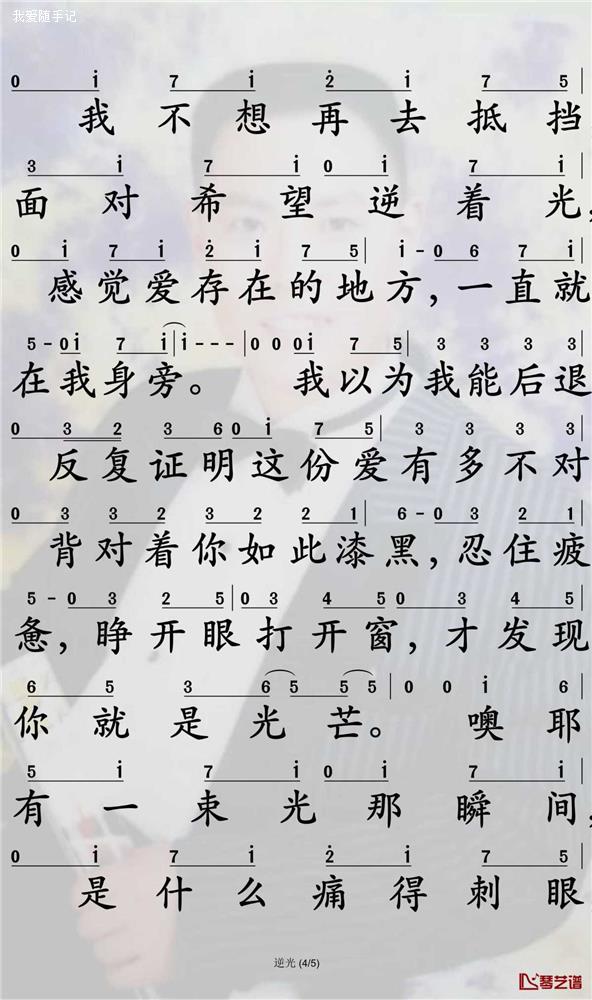 我爱随手记
0 i 7 i 2̇ i 7 5|
我不想再去抵挡
3 i 7 i 0 i 7 i|
面对希望逆着光,
0 i 7 i 2̇ i 7 5| i - 0 6 7 i|
感觉爱存在的地方,一直就
5 - 0 i 7 i| i - - -| 0 0 0 i 7 5| 3 3 3 3
在我身旁。 我以为我能后退
0 3 2 3 6 0 i 7 5| 3 3 3 3
反复证明这份爱有多不对
0 3 3 2 3 2 2 1| 6 - 0 3 2 1|
背对着你如此漆黑,忍住疲
5 - 0 3 2 5| 0 3 4 5 0 3 4 5|
惫,睁开眼打开窗,才发现
6 5 3 6 5 5 5| 0 0 i 6
你就是光芒。 噢耶
5 i 7 i 0 i 7 i|
有一束光那瞬间,
0 i 7 i 2̇ i 7 5|
是什么痛得刺眼
逆光 (4/5)
琴艺谱